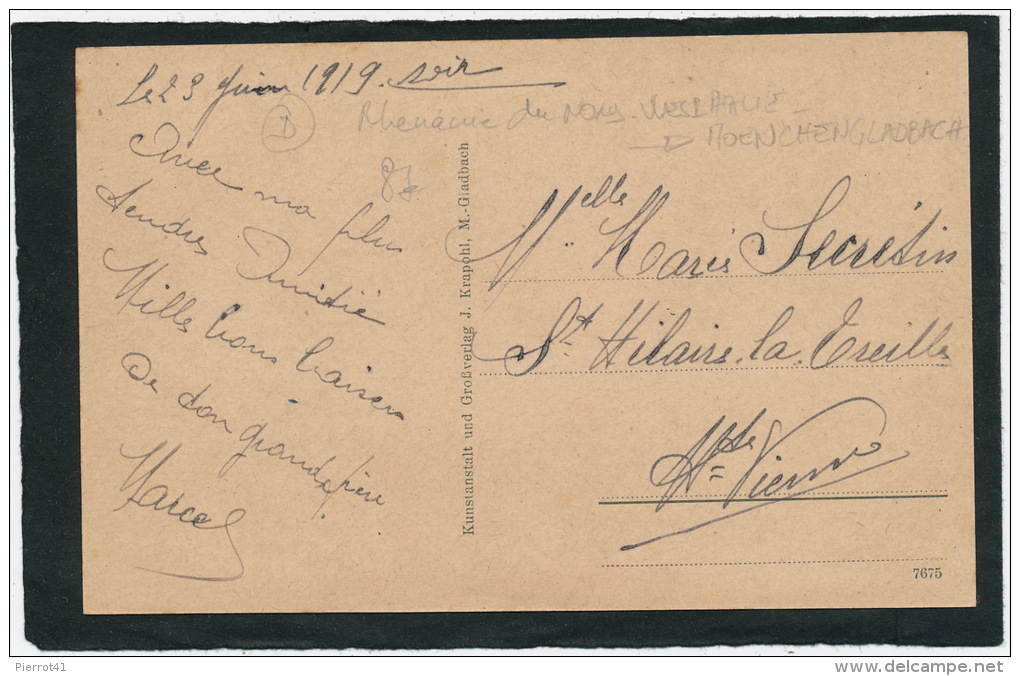 Le 23 Juin 1919. soir
D
Rhénanie du Nord-Westphalie -
MOENCHENGLADBACH
Avec ma plus
tendres Amitié
Mille bons baisers
De ton grand
Marcel
Kunstanstalt und Großverlag J. Krapohl, M.-Gladbach
Melle Marie Secrétin
St. Hilaire.la.Treille
Hte Vienne
7675
Pierrot41
www.delcampe.net